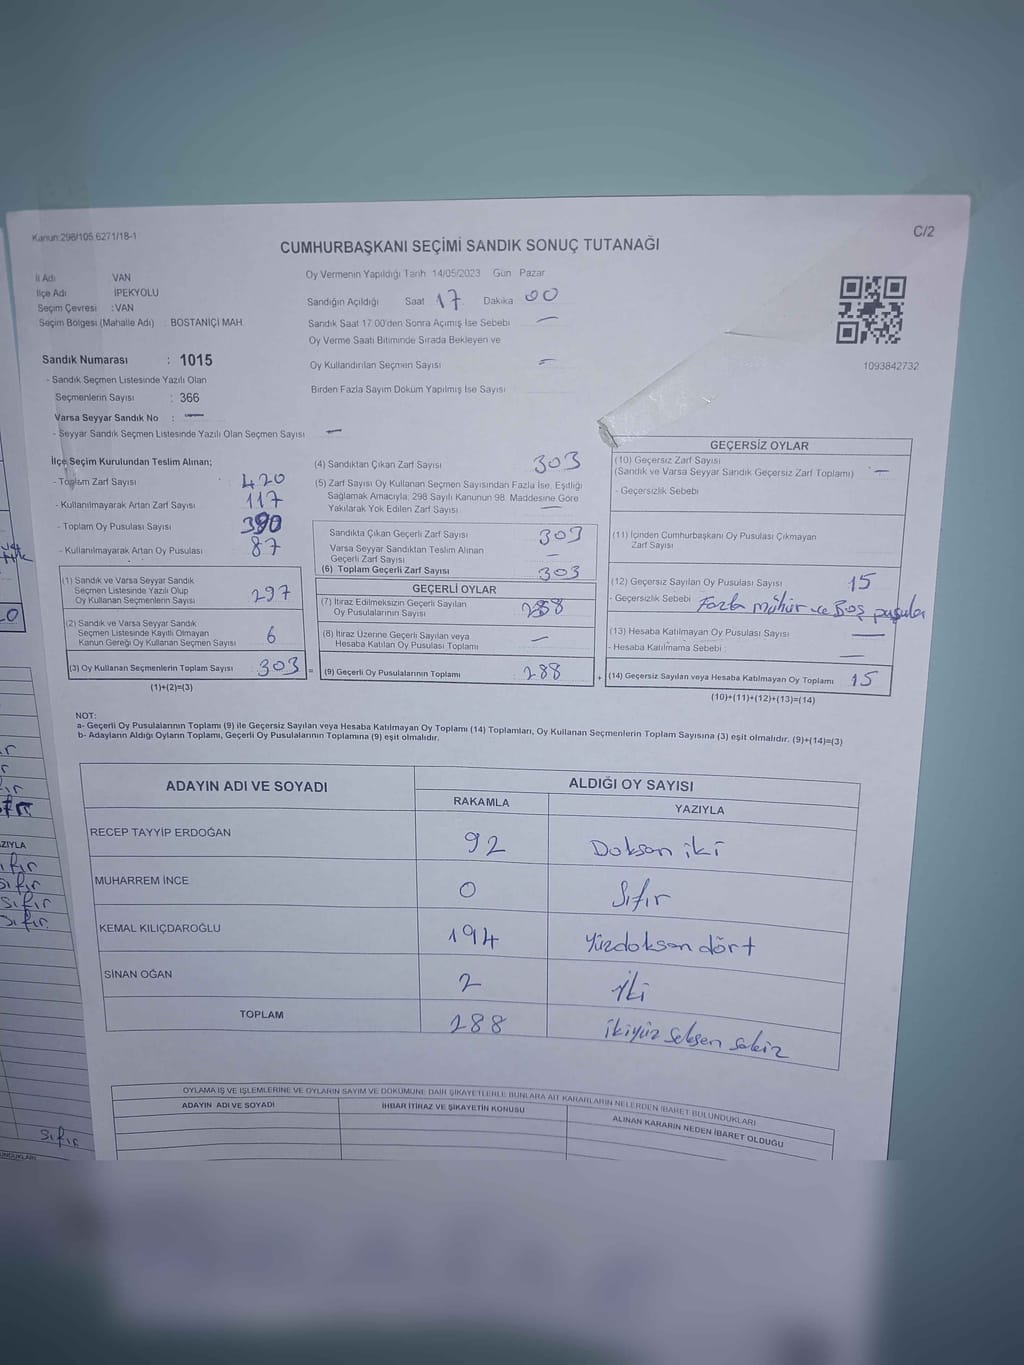 Kanun:298/105 6271/18-1
C/2
CUMHURBAŞKANI SEÇİMİ SANDIK SONUÇ TUTANAĞI
İl Adı VAN
İlçe Adı İPEKYOLU
Seçim Çevresi :VAN
Seçim Bölgesi (Mahalle Adı) : BOSTANİÇİ MAH.
Oy Vermenin Yapıldığı Tarih 14/05/2023 Gün Pazar
Sandığın Açıldığı Saat 17 Dakika 00
Sandık Saat 17:00'den Sonra Açımış İse Sebebi —
Oy Verme Saati Bitiminde Sırada Bekleyen ve
Oy Kullandırılan Seçmen Sayısı —
Birden Fazla Sayım Döküm Yapılmış İse Sayısı
1093842732
Sandık Numarası : 1015
- Sandık Seçmen Listesinde Yazılı Olan
Seçmenlerin Sayısı : 366
Varsa Seyyar Sandık No : —
- Seyyar Sandık Seçmen Listesinde Yazılı Olan Seçmen Sayısı —
İlçe Seçim Kurulundan Teslim Alınan;
- Toplam Zarf Sayısı 420
- Kullanılmayarak Artan Zarf Sayısı 117
- Toplam Oy Pusulası Sayısı 390
- Kullanılmayarak Artan Oy Pusulası 87
(1) Sandık ve Varsa Seyyar Sandık
Seçmen Listesinde Yazılı Olup
Oy Kullanan Seçmenlerin Sayısı 297
(2) Sandık ve Varsa Seyyar Sandık
Seçmen Listesinde Kayıtlı Olmayan
Kanun Gereği Oy Kullanan Seçmen Sayısı 6
(3) Oy Kullanan Seçmenlerin Toplam Sayısı 303 =
(1)+(2)=(3)
(4) Sandıktan Çıkan Zarf Sayısı 303
(5) Zarf Sayısı Oy Kullanan Seçmen Sayısından Fazla İse, Eşitliği
Sağlamak Amacıyla; 298 Sayılı Kanunun 98. Maddesine Göre
Yakılarak Yok Edilen Zarf Sayısı —
Sandıkta Çıkan Geçerli Zarf Sayısı 303
Varsa Seyyar Sandıktan Teslim Alınan
Geçerli Zarf Sayısı —
(6) Toplam Geçerli Zarf Sayısı 303
GEÇERLİ OYLAR
(7) İtiraz Edilmeksizin Geçerli Sayılan
Oy Pusulalarının Sayısı 288
(8) İtiraz Üzerine Geçerli Sayılan veya
Hesaba Katılan Oy Pusulası Toplamı —
(9) Geçerli Oy Pusulalarının Toplamı 288 +
GEÇERSİZ OYLAR
(10) Geçersiz Zarf Sayısı
(Sandık ve Varsa Seyyar Sandık Geçersiz Zarf Toplamı) —
- Geçersizlik Sebebi
(11) İçinden Cumhurbaşkanı Oy Pusulası Çıkmayan
Zarf Sayısı
(12) Geçersiz Sayılan Oy Pusulası Sayısı 15
- Geçersizlik Sebebi Fazla mühür ve Boş pusula
(13) Hesaba Katılmayan Oy Pusulası Sayısı —
- Hesaba Katılmama Sebebi : —
(14) Geçersiz Sayılan veya Hesaba Katılmayan Oy Toplamı 15
(10)+(11)+(12)+(13)=(14)
NOT:
a- Geçerli Oy Pusulalarının Toplamı (9) ile Geçersiz Sayılan veya Hesaba Katılmayan Oy Toplamı (14) Toplamları, Oy Kullanan Seçmenlerin Toplam Sayısına (3) eşit olmalıdır. (9)+(14)=(3)
b- Adayların Aldığı Oyların Toplamı, Geçerli Oy Pusulalarının Toplamına (9) eşit olmalıdır.
ADAYIN ADI VE SOYADI ALDIĞI OY SAYISI
RAKAMLA YAZIYLA
RECEP TAYYİP ERDOĞAN 92 Doksan iki
MUHARREM İNCE 0 Sıfır
KEMAL KILIÇDAROĞLU 194 Yüzdoksan dört
SİNAN OĞAN 2 İki
TOPLAM 288 ikiyüz seksen sekiz
OYLAMA İŞ VE İŞLEMLERİNE VE OYLARIN SAYIM VE DÖKÜMÜNE DAİR ŞİKAYETLERLE BUNLARA AİT KARARLARIN NELERDEN İBARET BULUNDUKLARI
ADAYIN ADI VE SOYADI İHBAR İTİRAZ VE ŞİKAYETİN KONUSU ALINAN KARARIN NEDEN İBARET OLDUĞU
sıfır
sıfır
sıfır
Sıfır